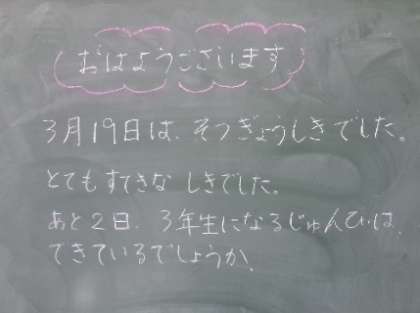 おはようございます
3月19日は、そつぎょうしきでした。
とてもすてきな しきでした。
あと2日、3年生になるじゅんびは、
できているでしょうか、